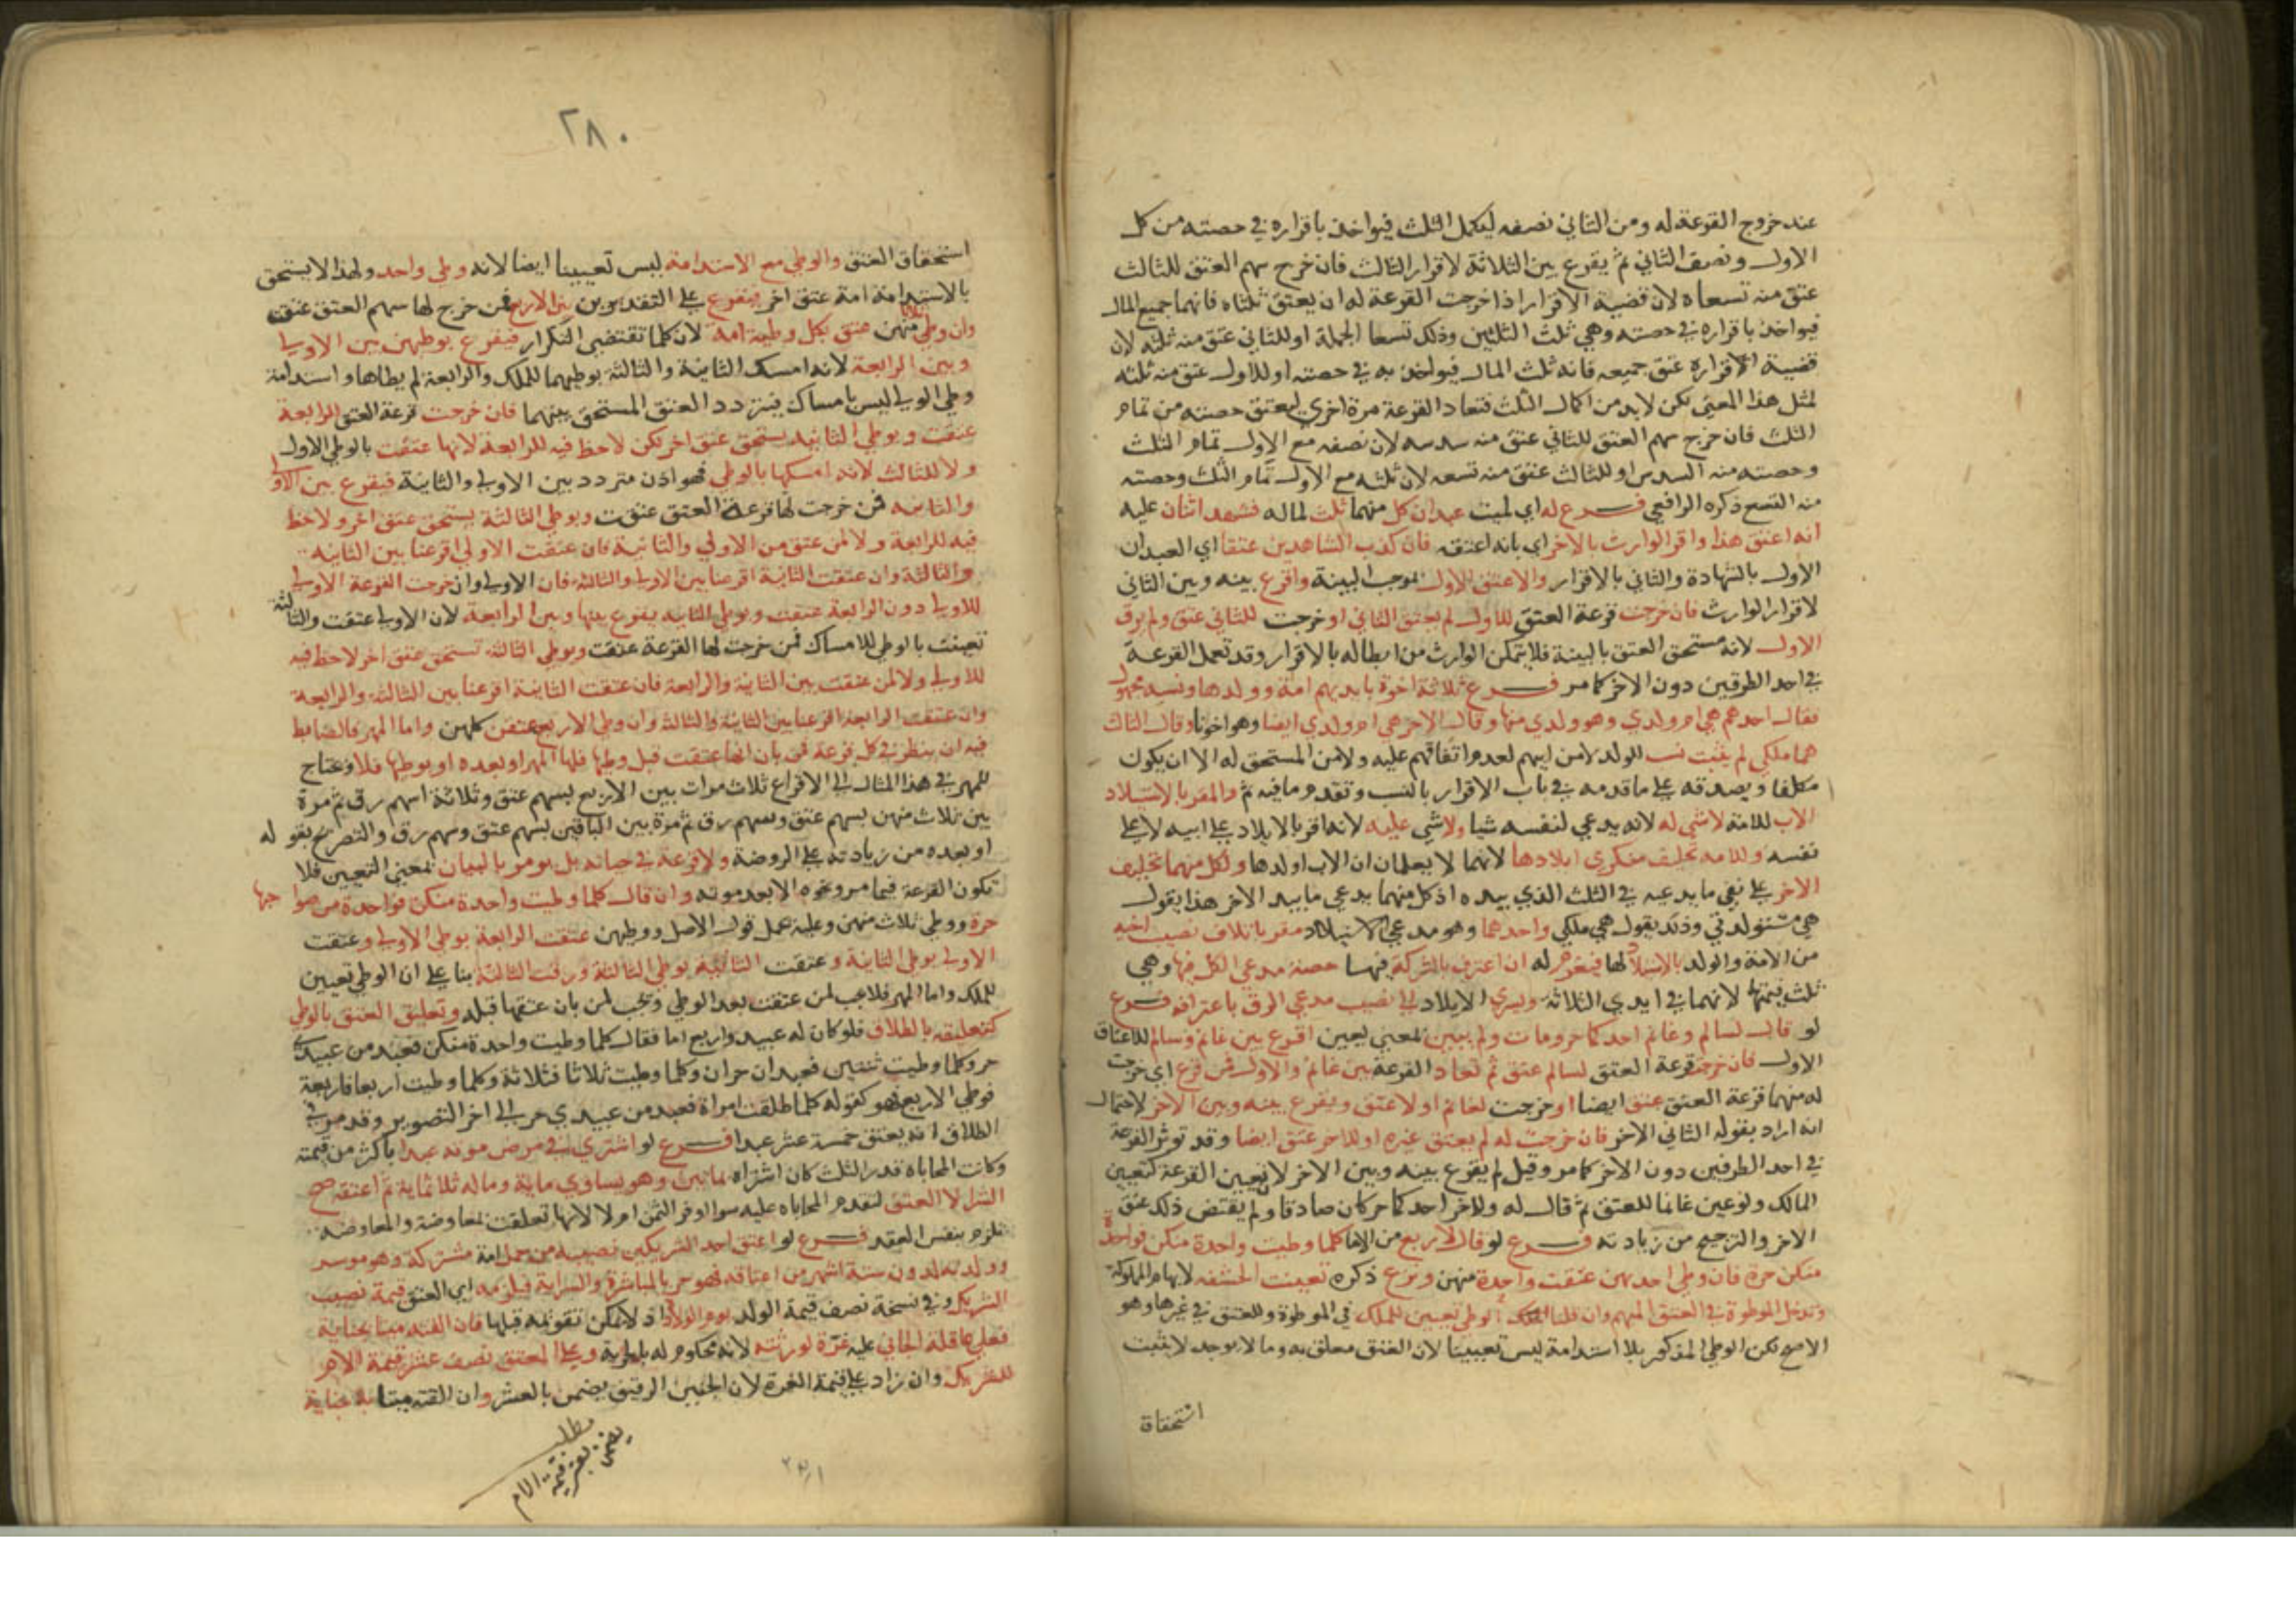 عند خروج القرعة له ومن الثاني نصفه ليكمل الثلث فيواخذ باقراره في حصته من كل
الاول ونصف الثاني ثم يقرع بين الثلاثة لاقرار الثالث فان خرج سهم العتق للثالث
عتق منه تسعاه لان قضية الاقرار اذا خرجت القرعة له ان يعتق ثلثاه فانهما جميع المال
فيواخذ باقراره في حصته وهي ثلث الثلثين وذلك تسعا الجملة او للثاني عتق منه ثلثه لان
قضية الاقراره عتق جميعه فانه ثلث المال فيواخذ به في حصته او للاول عتق منه ثلثه
لمثل هذا المعنى لكن لابد من اكمال الثلث فتعاد القرعة مرة اخرى ليعتق حصته من تمام
الثلث فان خرج سهم العتق للثاني عتق منه سدسه لان نصفه مع الاول تمام الثلث
وحصته منه السدس او للثالث عتق منه تسعه لان ثلثه مع الاول تمام الثلث وحصته
منه التسع ذكره الرافعي فرع له اي لميت عبدان كل منهما ثلث لماله فشهد اثنان عليه
انه اعتق هذا واقر الوارث بالاخر اي بانه اعتقه فان كذب الشاهدين عتقا اي العبدان
الاول بالشهادة والثاني بالاقرار والا عتق الاول بموجب البينة واقرع بينه وبين الثاني
لاقرار الوارث فان خرجت قرعة العتق للاول لم يعتق الثاني او خرجت للثاني عتق ولم يرق
الاول لانه مستحق العتق بالبينة فلا يتمكن الوارث من ابطاله بالاقرار وقد تعمل القرعة
في احد الطرفين دون الاخر كما مر فرع ثلاثة اخوة بايديهم امة وولدها ونسبه مجهول
فقال احدهم هي ام ولدي وهو ولدي منها وقال الاخر هي ام ولد ابي ايضا وهو اخونا وقال الثالث
هما ملكي لم يثبت نسب للولد لا من ابيهم لعدم اتفاقهم عليه ولا من المستحق له الا ان يكون
مكلفا ويصدقه على ما قدمه في باب الاقرار بالنسب وتقدم ما فيه ثم والمقر بالاستيلاد
الاب للامة لا شي له لانه يدعي لنفسه شيا ولا شي عليه لانه اقر بالايلاد على ابيه لا على
نفسه وللامه تحليف منكري ايلادها لانهما لا يعلمان ان الاب اولدها ولكل منهما تحليف
الاخر على نفي ما يدعيه في الثلث الذي بيده اذ كل منهما يدعي ما بيد الاخر هذا يقول
هي مستولدتي وذك يقول هي ملكي واحدهما وهو مدعي الاستيلاد مقر باتلاف نصيب اخيه
من الامة والولد بالاستيلاد لها فيغرم له ان اعترف بالشركة فيها حصة مدعي الكل فيها وهي
ثلث قيمتها لانهما في ايدي الثلاثة ويسري الايلاد الى نصيب مدعي الرق باعترافه فرع
لو قال لسالم وغانم احدكما حر ومات ولم يبين بمعنى يعين اقرع بين غانم وسالم للاعتاق
الاول فان خرجت قرعة العتق لسالم عتق ثم تعاد القرعة بين غانم والاول فمن قرع اي خرجت
له منهما قرعة العتق عتق ايضا او خرجت لغانم اولا عتق ويقرع بينه وبين الاخر لاحتمال
انه اراد بقوله الثاني الاخر فان خرجت له لم يعتق غيره او للاخر عتق ايضا وقد توثر القرعة
في احد الطرفين دون الاخر كما مر وقيل لم يقرع بينه وبين الاخر لان تعيين القرعة كتعيين
المالك ولو عين غانما للعتق ثم قال له وللاخر احدكما حر كان صادقا ولم يقتض ذلك عتق
الاخر والترجيح من زيادته فرع لو قال لاربع من الاما كلما وطيت واحدة منكن فواحدة
منكن حرة فان وطي احديهن عتقت واحدة منهن ونزع ذكره تعيينت الحشفه لابهام المملوكة
وتدخل الموطوة في العتق المبهم وان قلنا الوطي تعيين للملك في الموطوة وللعتق في غيرها وهو
الاصح لكن الوطي المذكور بلا استدامة ليس تعيينا لان العتق معلق به وما لا يوجد لا يثبت
استحقاق
٢٨٠
استحقاق العتق والوطي مع الاستدامة ليس تعيينا ايضا لانه وطي واحد ولهذا لا يستحق
بالاستدامة امة عتق اخر فيقرع على التقديرين بين الاربع فمن خرج لها سهم العتق عتقت
وان وطي ثلاثا منهن عتق بكل وطية امة لان كلما تقتضي التكرار فيقرع بوطيهن بين الاولى
وبين الرابعة لانه امسك الثانية والثالثة بوطيهما للملك والرابعة لم يطاها واستدامة
وطي الاولى ليس بامساك فيتردد العتق المستحق بينهما فان خرجت قرعة العتق للرابعة
عتقت وبوطي الثانية يستحق عتق اخر لكن لا حظ فيه للرابعة لانها عتقت بالوطي الاول
ولا للثالث لانه امسكها بالوطي فهو اذن متردد بين الاولى والثانية فيقرع بين الاولى
والثانيه فمن خرجت لها قرعة العتق عتقت وبوطي الثالثة يستحق عتق اخر ولا حظ
فيه للرابعة ولا لمن عتق من الاولى والثانية فان عتقت الاولى اقرعنا بين الثانيه
والثالثة وان عتقت الثانية اقرعنا بين الاولى والثالثة فان الاولى وان خرجت القرعة الاولى
للاولى دون الرابعة عتقت وبوطي الثانيه يقرع بينها وبين الرابعة لان الاولى عتقت والثالثة
تعينت بالوطي للامساك فمن خرجت لها القرعة عتقت وبوطي الثالثة تستحق عتق اخر لا حظ فيه
للاولى ولا لمن عتقت بين الثانية والرابعة فان عتقت الثانية اقرعنا بين الثالثة والرابعة
وان عتقت الرابعة اقرعنا بين الثانية والثالثة وان وطي الاربع عتقن كلهن واما المهر فالضابط
فيه ان ينظر في كل قرعة فمن بان انها عتقت قبل وطيها فلها المهر او بعده او بوطيها فلا ونحتاج
للمهر في هذا المثال الى الاقراع ثلاث مرات بين الاربع بسهم عتق وثلاثة اسهم رق ثم مرة
بين ثلاث منهن بسهم عتق وسهم رق ثم مرة بين الباقين بسهم عتق وسهم رق والتصريح بقوله
او بعده من زيادته على الروضة ولا قرعة في حياته بل يومر بالبيان بمعنى التعيين فلا
تكون القرعة فيما مر ونحوه الا بعد موته وان قال كلما وطيت واحدة منكن فواحدة من صواحبها
حرة ووطي ثلاث منهن وعليه عمل قول الاصل ووطيهن عتقت الرابعة بوطي الاولى وعتقت
الاولى بوطي الثانية وعتقت الثانية بوطي الثالثة ورقت الثالثة بنا على ان الوطي تعيين
للملك واما المهر فلا يجب لمن عتقت بعد الوطي ويجب لمن بان عتقها قبله وتعليق العتق بالوطي
كتعليقه بالطلاق فلو كان له عبيد واربع اما فقال كلما وطيت واحدة منكن فعبد من عبيدي
حر وكلما وطيت ثنتين فعبدان حران وكلما وطيت ثلاثا فثلاثة وكلما وطيت اربعا فاربعة
فوطي الاربع فهو كقوله كلما طلقت امراة فعبد من عبيدي حر الى اخر التصوير وقد مر في
الطلاق انه يعتق خمسة عشر عبدا فرع لو اشترى في مرض موته عبدا باكثر من قيمته
وكانت المحاباة قدر الثلث كان اشتراه بمائتين وهو يساوي ماية وماله ثلاثماية ثم اعتقه صح
الشرا لا العتق لتقدم المحاباه عليه سوا اوفر الثمن ام لا لانها تعلقت بمعاوضة والمعاوضه
تلزم بنفس العقد فرع لو اعتق احد الشريكين نصيبه من حمل امة مشتركة وهو موسر
وولدته لدون ستة اشهر من اعتاقه فهو حر بالمباشرة والسراية فيلزمه اي المعتق قيمة نصيب
الشريك وفي نسخة نصف قيمة الولد يوم الولادة اذ لا يمكن تقويمه قبلها فان القته ميتا بجناية
فعلى عاقلة الجاني عليه غرة لورثته لانه محكوم له بالحرية وعلى المعتق نصف عشر قيمة الام
للشريك وان زاد على قيمة الغرة لان الجنين الرقيق يضمن بالعشر وان القته ميتا بلا جناية
مطلب
يضمن بعشر قيمة الام